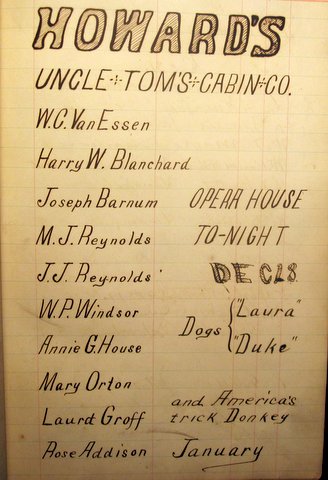 HOWARD'S
UNCLE TOM'S CABIN CO.
W.C. Van Essen
Harry W. Blanchard
Joseph Barnum OPERA HOUSE
M.J. Reynolds TO-NIGHT
J.J. Reynolds DEC 18.
W.P. Windsor "Laura"
Dogs
Annie G. House "Duke"
Mary Orton
Groff and America's
trick Donkey
Rose Addison January